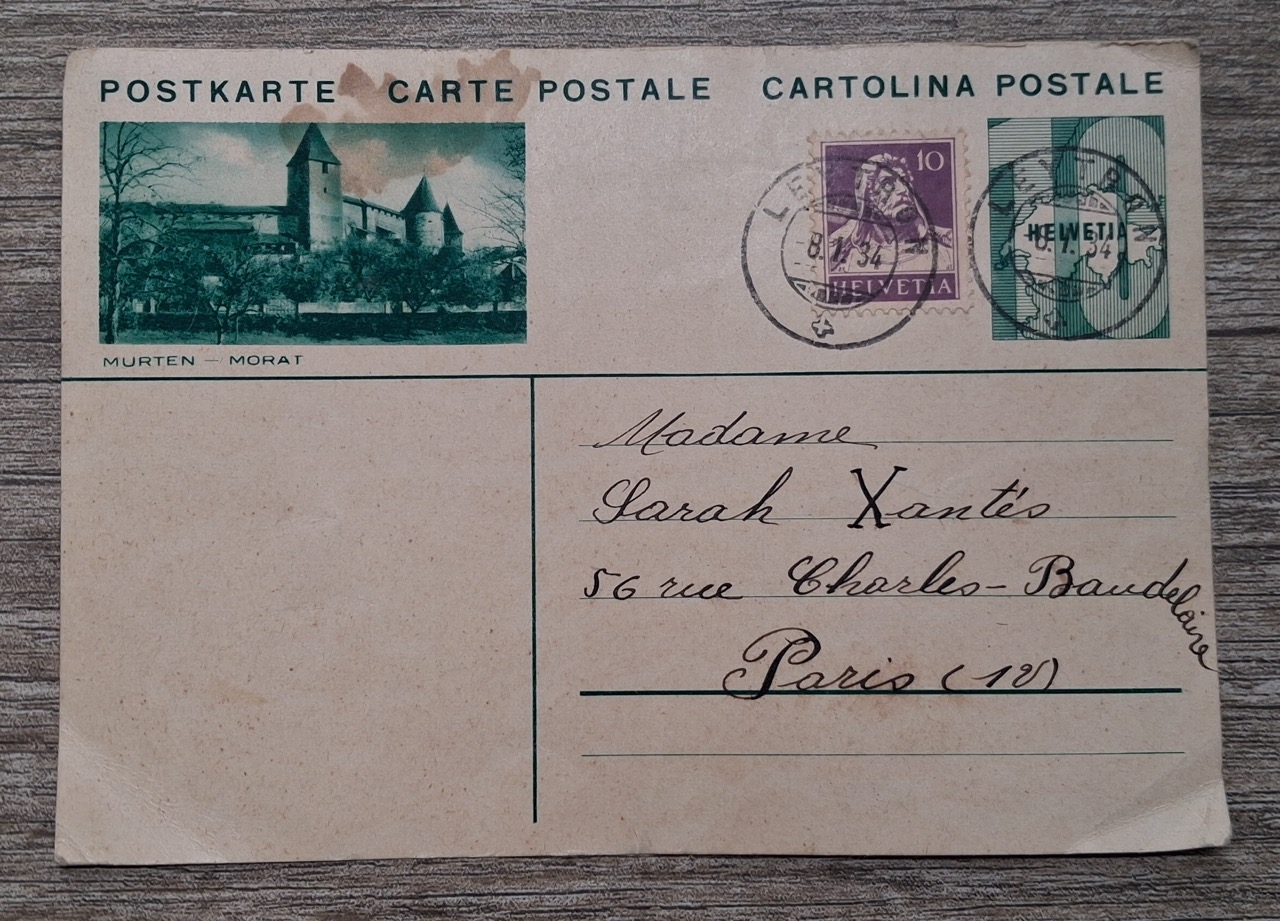 POSTKARTE CARTE POSTALE CARTOLINA POSTALE
10
HELVETIA
-8.1.34
HELVETIA
8.1.34
MURTEN – MORAT
Madame
Sarah Xantés
56 rue Charles-Baudelaire
Paris (12)